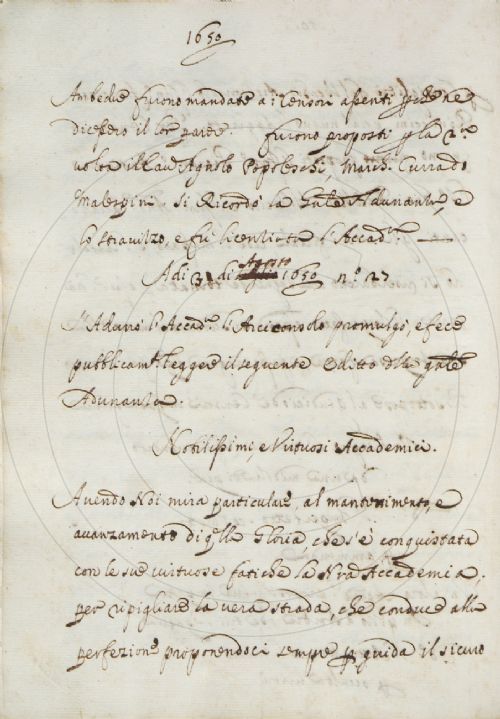 1650
Ambedue furono mandate a i Censori assenti p che ne
dicessero il lor parere. furono proposti p la
volta il Cav Agnolo Popoleschi, Marcs. Currado
Malespini. Si Ricordò la Gnle Adunanza, e
lo stravizzo, e fu licenziata l'Accad.
A di 31 di Agosto 1650 n.o 27
S'Adunò l'Accad. l'Arciconsolo promulgò, e fece
pubblicam. leggere il seguente Editto della gnle
Adunanza.
Nobilissimi, e Virtuosi Accademici.
Avendo Noi mira particulare, al mantenimento, e
avanzamento di qlla Gloria, che s'è conquistata
con le sue virtuose fatiche la Nra Accademia,
per ripigliare la vera strada, che conduce alla
perfezione proponendoci sempre p guida il sicuro